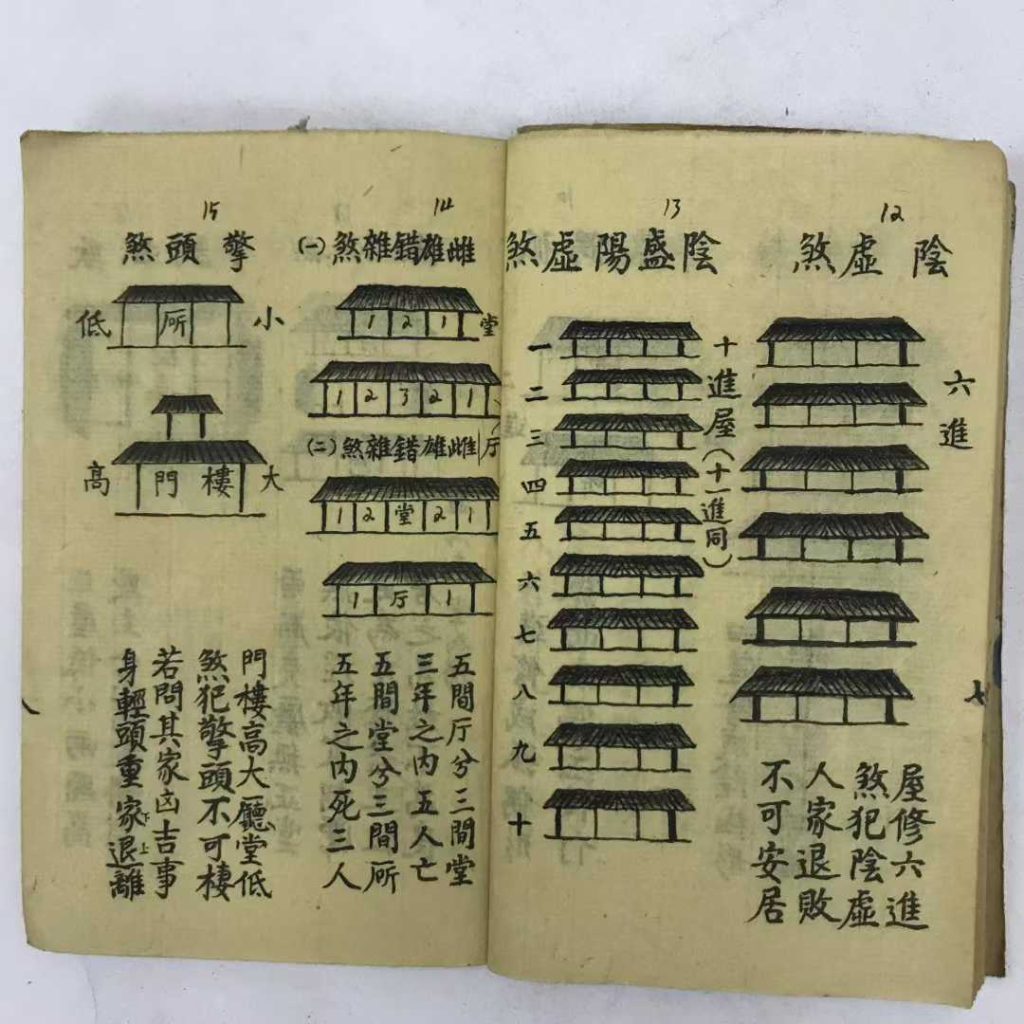 12
陰虛煞
六進
屋修六進
煞犯陰虛
人家退敗
不可安居
七
13
陰盛陽虛煞
十進屋(十一進同)
一
二
三
四
五
六
七
八
九
十
14
雌雄錯雜煞(一)
堂
1 2 1
1 2 3 2 1
厅
雌雄錯雜煞(二)
1 2 堂 2 1
1 厅 1
五間厅兮三間堂
三年之內五人亡
五間堂兮三間厛
五年之內死三人
15
擎頭煞
小 厛 低
大 樓門 高
門樓高大廳堂低
煞犯擎頭不可棲
若問其家凶吉事
身輕頭重家退離
下
上